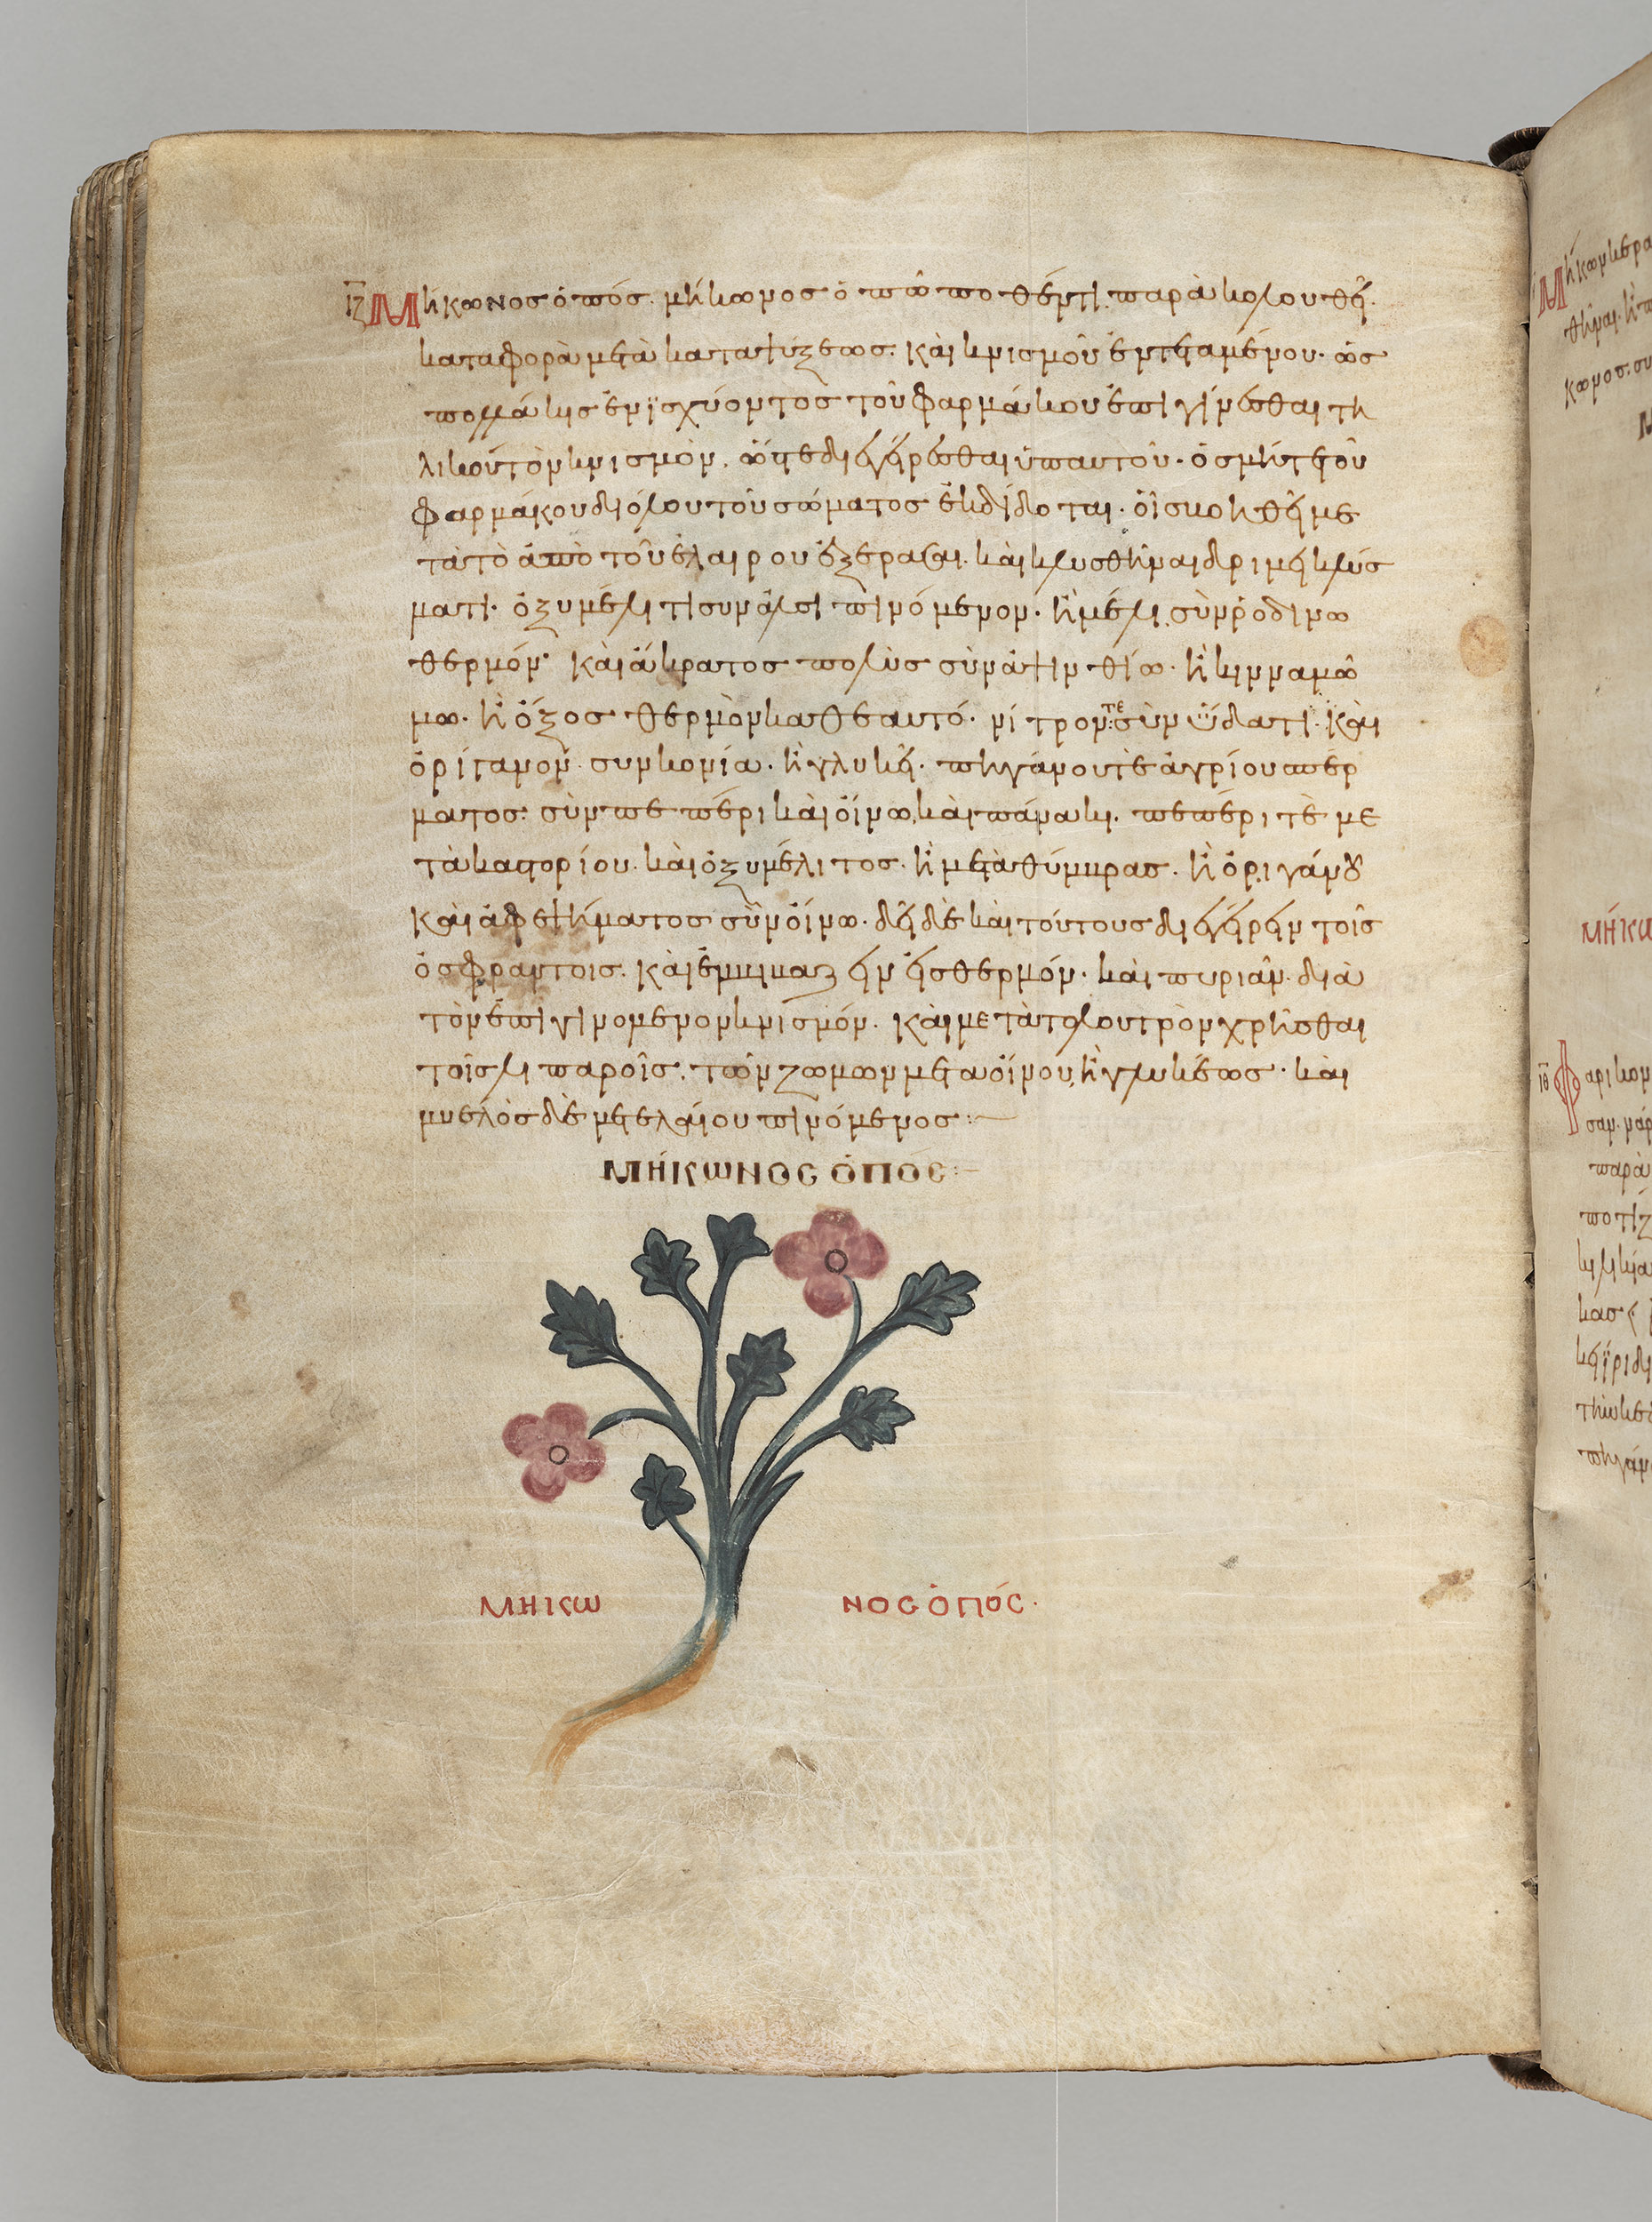 ιζ Μήκωνος ὀπός. μήκωνος ὀπῶ ποθέντι. παρακολουθεῖ.
καταφορὰ μετὰ καταψύξεως. καὶ κνισμοῦ ἐντεταμένου. ὡς
πολλάκις ἐνϊσχύοντος τοῦ φαρμάκου ἐπιγίνεσθαι τη
λικοῦτὸν κνισμὸν. ὥστε διεγείρεσθαι ὑπαυτοῦ. ὀσμήτε τοῦ
φαρμάκου διόλου τοῦ σώματος ἐκδίδοται. οἷς βοηθεῖ με
τὰ τὸ ἀπὸ τοῦ ἐλαίου ἐξεράσαι. καὶ κλυσθῆναι δριμεῖ κλύσ
ματι. ὀξυμέλιτι σὺν ἁλσὶ πινόμενον. ἢ μέλι σὺν ῥοδίνω
θερμόν. καὶ ἄκρατος πολὺς σὺν ἀψινθίω. ἢ κινναμώ
μω. ἢ ὄξος θερμὸν καθεαυτό. νίτρον τε σὺν ὕδατι. καὶ
ὀρίγανον συν κονία. ἢ γλυκεῖ. πηγάνου τὲ ἀγρίου σπέρ
ματος. σὺν πεπέρι καὶ οἴνω, καὶ πάνακι. πεπέρι τὲ με
τὰ καστορίου. καὶ ὀξυμέλιτος. ἢ μετὰ θύμβρας. ἢ ὀριγάνου
καὶ ἀφεψήματος σὺν οἴνω. δεῖ δὲ καὶ τούτους διεγείρειν τοῖς
ὀσφραντοῖς. καὶ ἐμβιβάζειν εἰς θερμόν. καὶ πυριᾶν. διὰ
τὸν ἐπιγινόμενον κνισμόν. καὶ μετὰ τὸ λουτρὸν χρῆσθαι
τοῖς λιπαροῖς. τῶν ζωμῶν μετα οἴνου, ἢ γλυκέως. καὶ
μυελὸς δὲ μετ ελαίου πινόμενος:
ΜΉΚΩΝΟΣ ὈΠΌΣ:
ΜΗΚΩ ΝΟΣ ὈΠΌΣ.
ΜΉΚΩ
ιθ